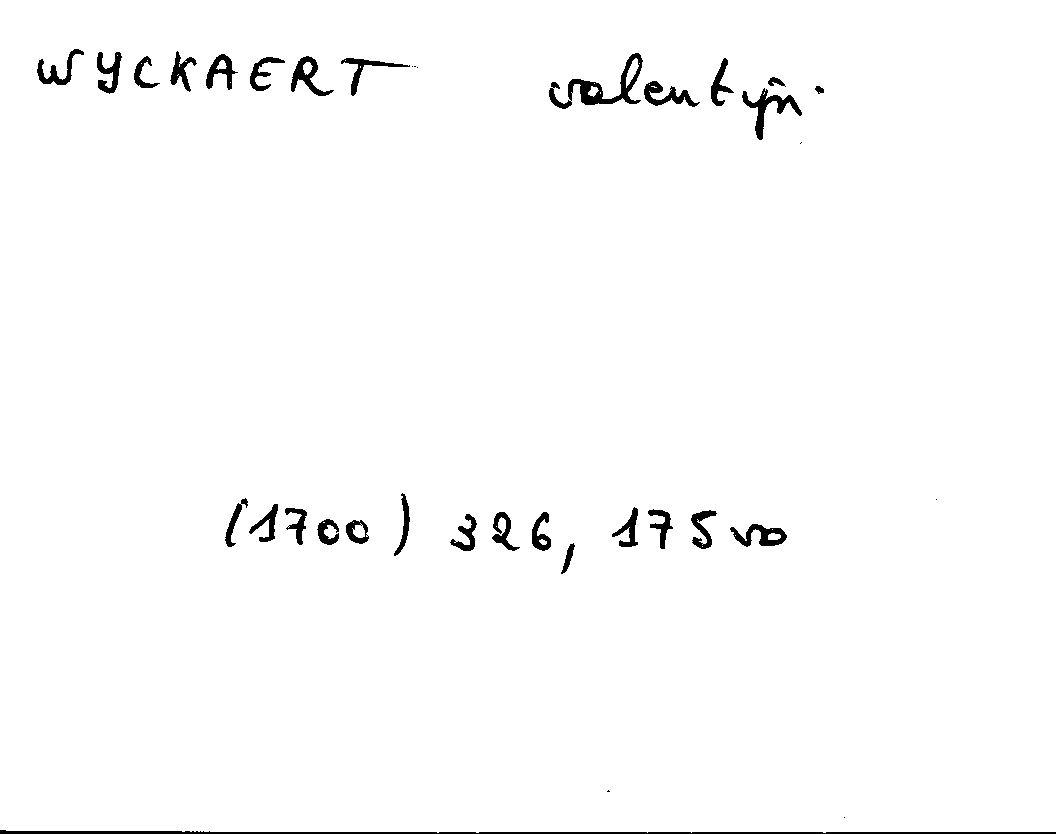 WYCKAERT valentyn.
(1700) 326, 175vo